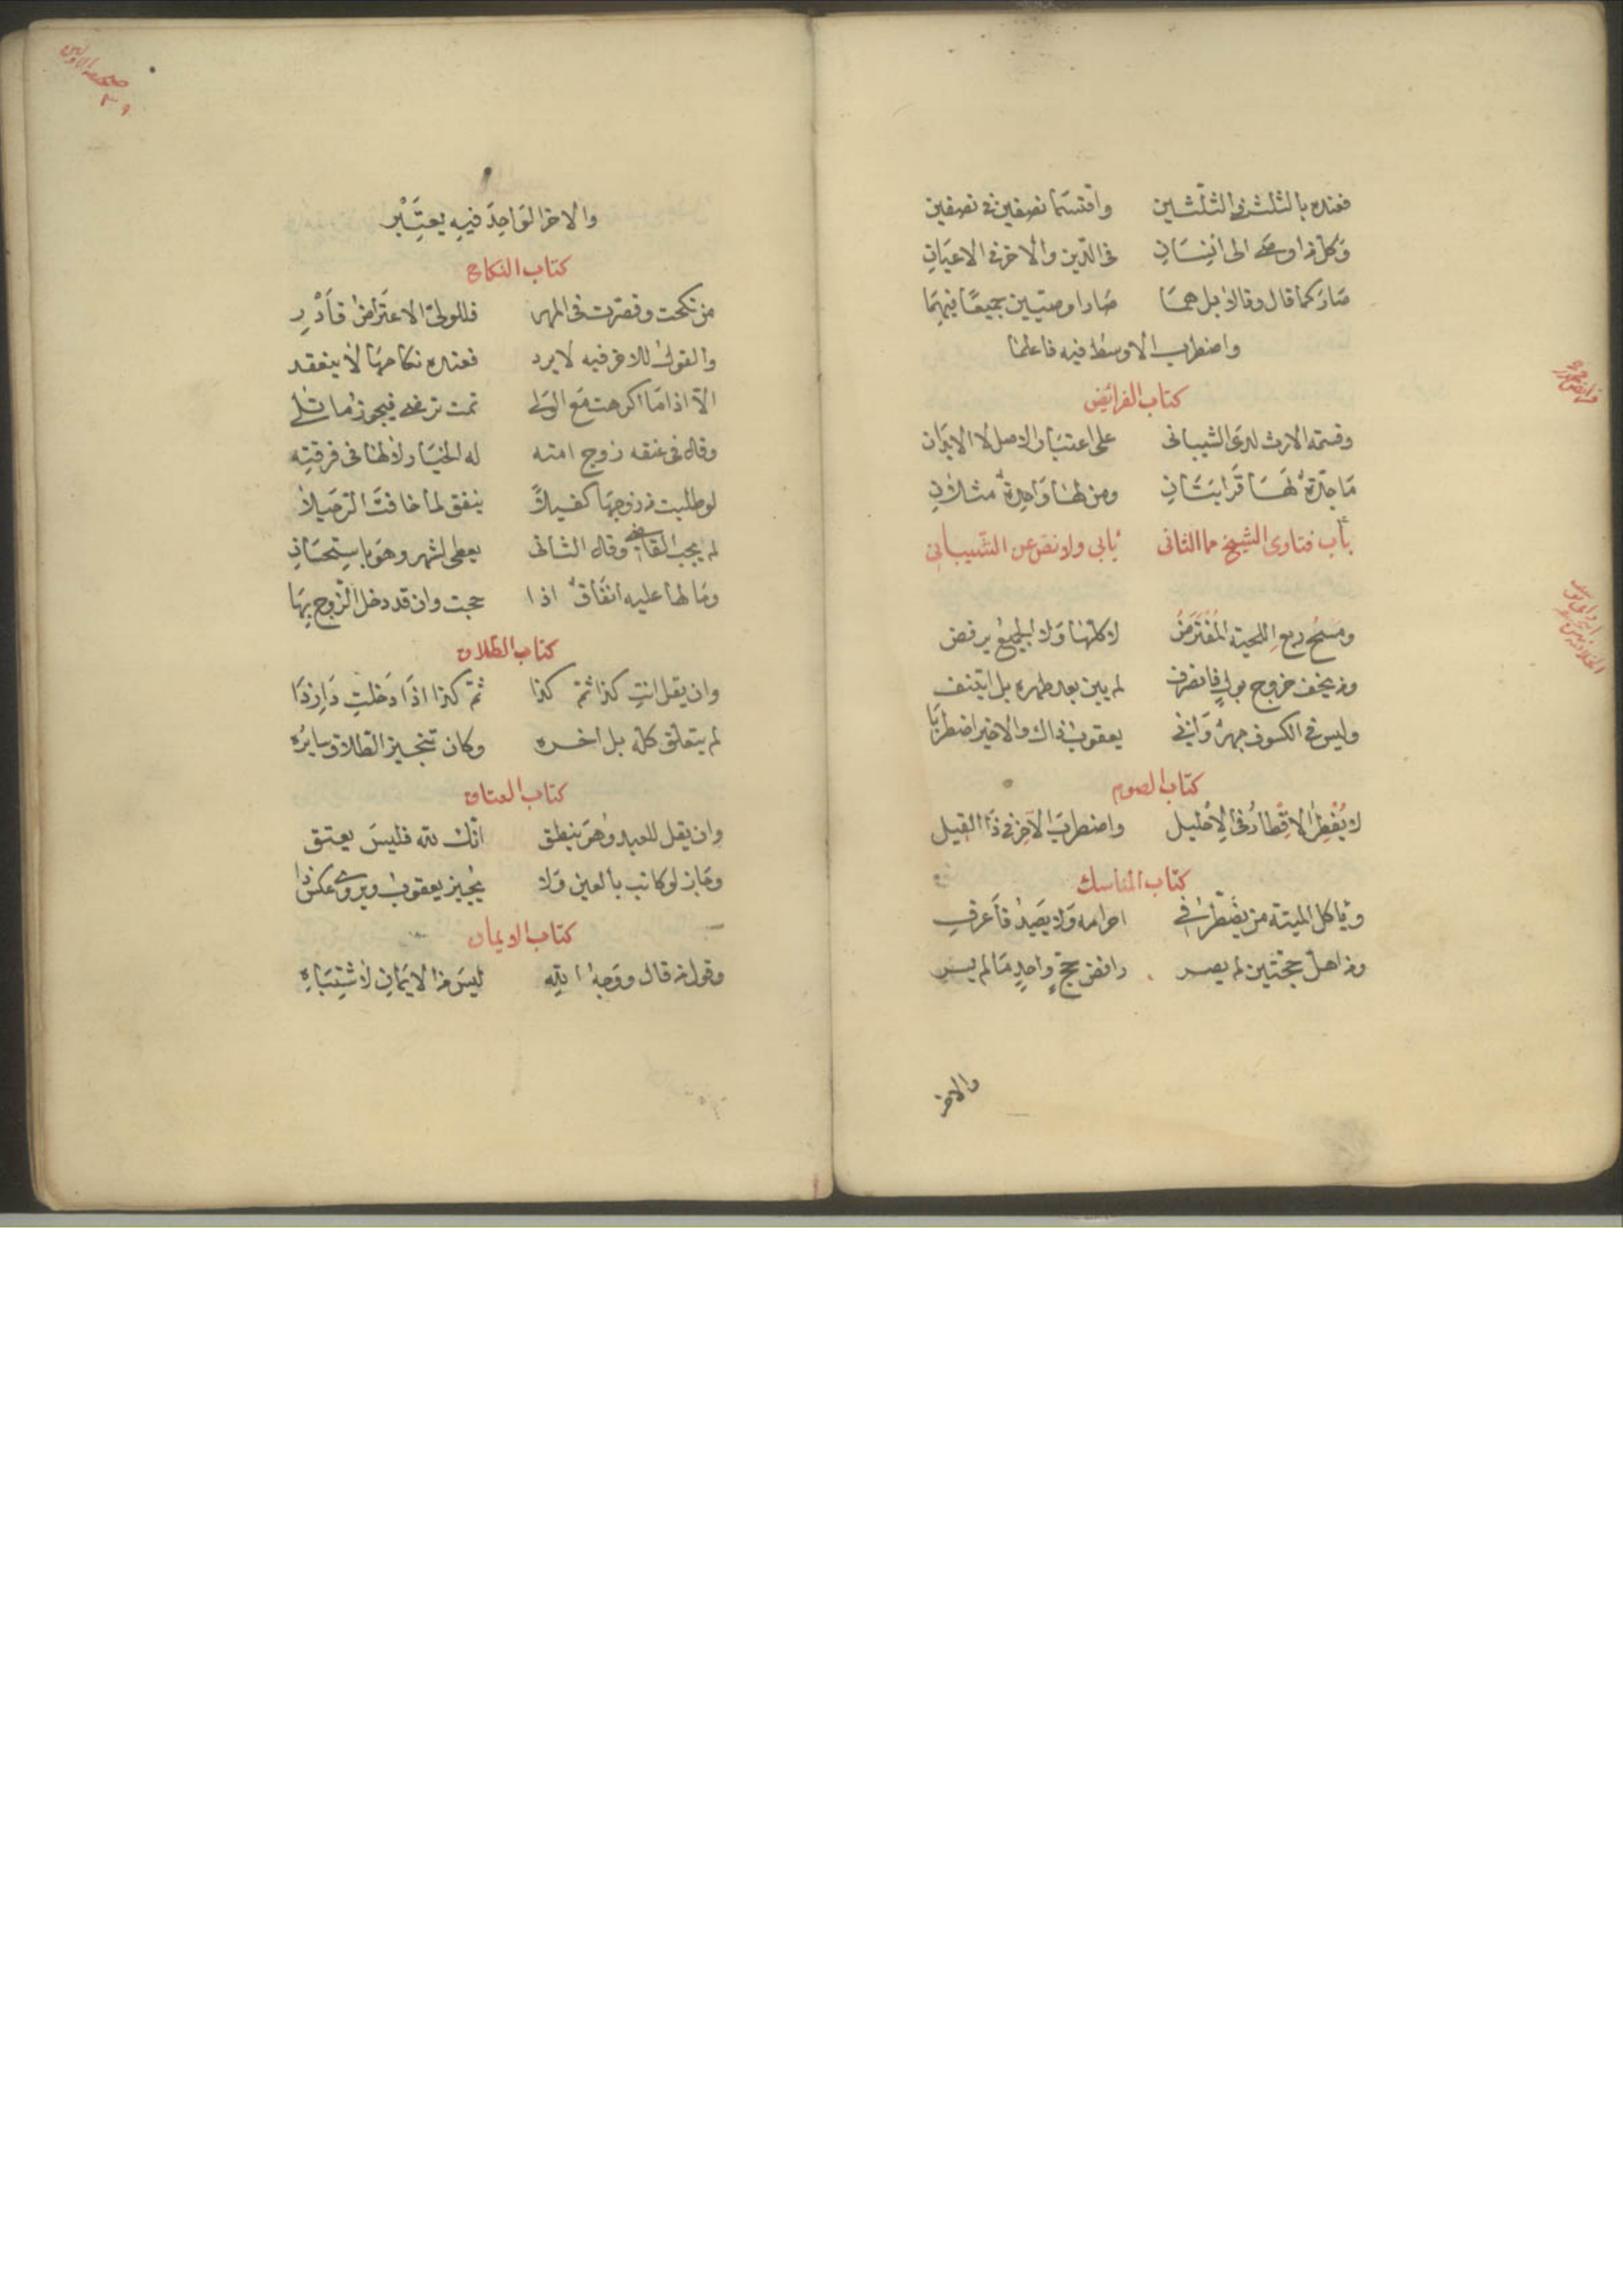 فعنده بالثلث في الثلثين واقتسما نصفين في نصفين
وكل من اوصى الى انسان في الدين والاخر في الاعيان
صار كما قال وقالا بل هما صارا وصيين جميعا فيهما
واضطرب الاوسط فيه فاعلما
كتاب الفرائض
وقسمة الارث لدى الشيباني على اعتبار الاصل لا الابدان
ما جدة لها قرابتان ومن لها واحدة مثلان
باب فتاوى الشيخ مما الثاني يابى ولا نص عن الشيباني
ومسح ربع اللحية المفترض لا كلها ولا الجميع يرفض
ومن يخف خروج بول فانصرف لم يبن بعد طهره بل ايتنف
وليس في الكسوف جهر وابى يعقوب ذاك والاخير اضطربا
كتاب الصوم
لا يفطر الاقطار في الاحليل واضطرب الآخر في ذا القيل
كتاب المناسك
وياكل الميتة من يضطر في احرامه ولا يصيد فاعرف
ومن اهل بحجتين لم يصر رافض حج واحد ما لم يسر
والاخر
والاخر الواحد فيه يعتبر
كتاب النكاح
من نكحت وقصرت في المهر فللولي الاعتراض فادر
والقول للاخر فيه لا يرد فعنده نكاحها لا ينعقد
الا اذا ما اكرهت مع الولي ثمت ترضى فيجوز ما تلي
وقال في عتقه زوج امته له الخيار لا لها في فرقته
لو طلبت من زوجها كفيلا ينفق لما خافت الرحيلا
لم يجب القاضي وقال الثاني يعطى لشهر وهو باستحسان
وما لها عليه انفاق اذا حجت وان قد دخل الزوج بها
كتاب الطلاق
وان يقل انت كذا ثم كذا ثم كذا اذا دخلت دار ذا
لم يتعلق كله بل اخره وكان تنجيز الطلاق سايره
كتاب العتاق
وان يقل للعبد وهو ينطق انك لله فليس يعتق
وجاز لو كاتب بالعين ولا يجيز يعقوب ويروى عكس ذا
كتاب الايمان
وقول من قال ووجه الله ليس من الايمان لاشتباه